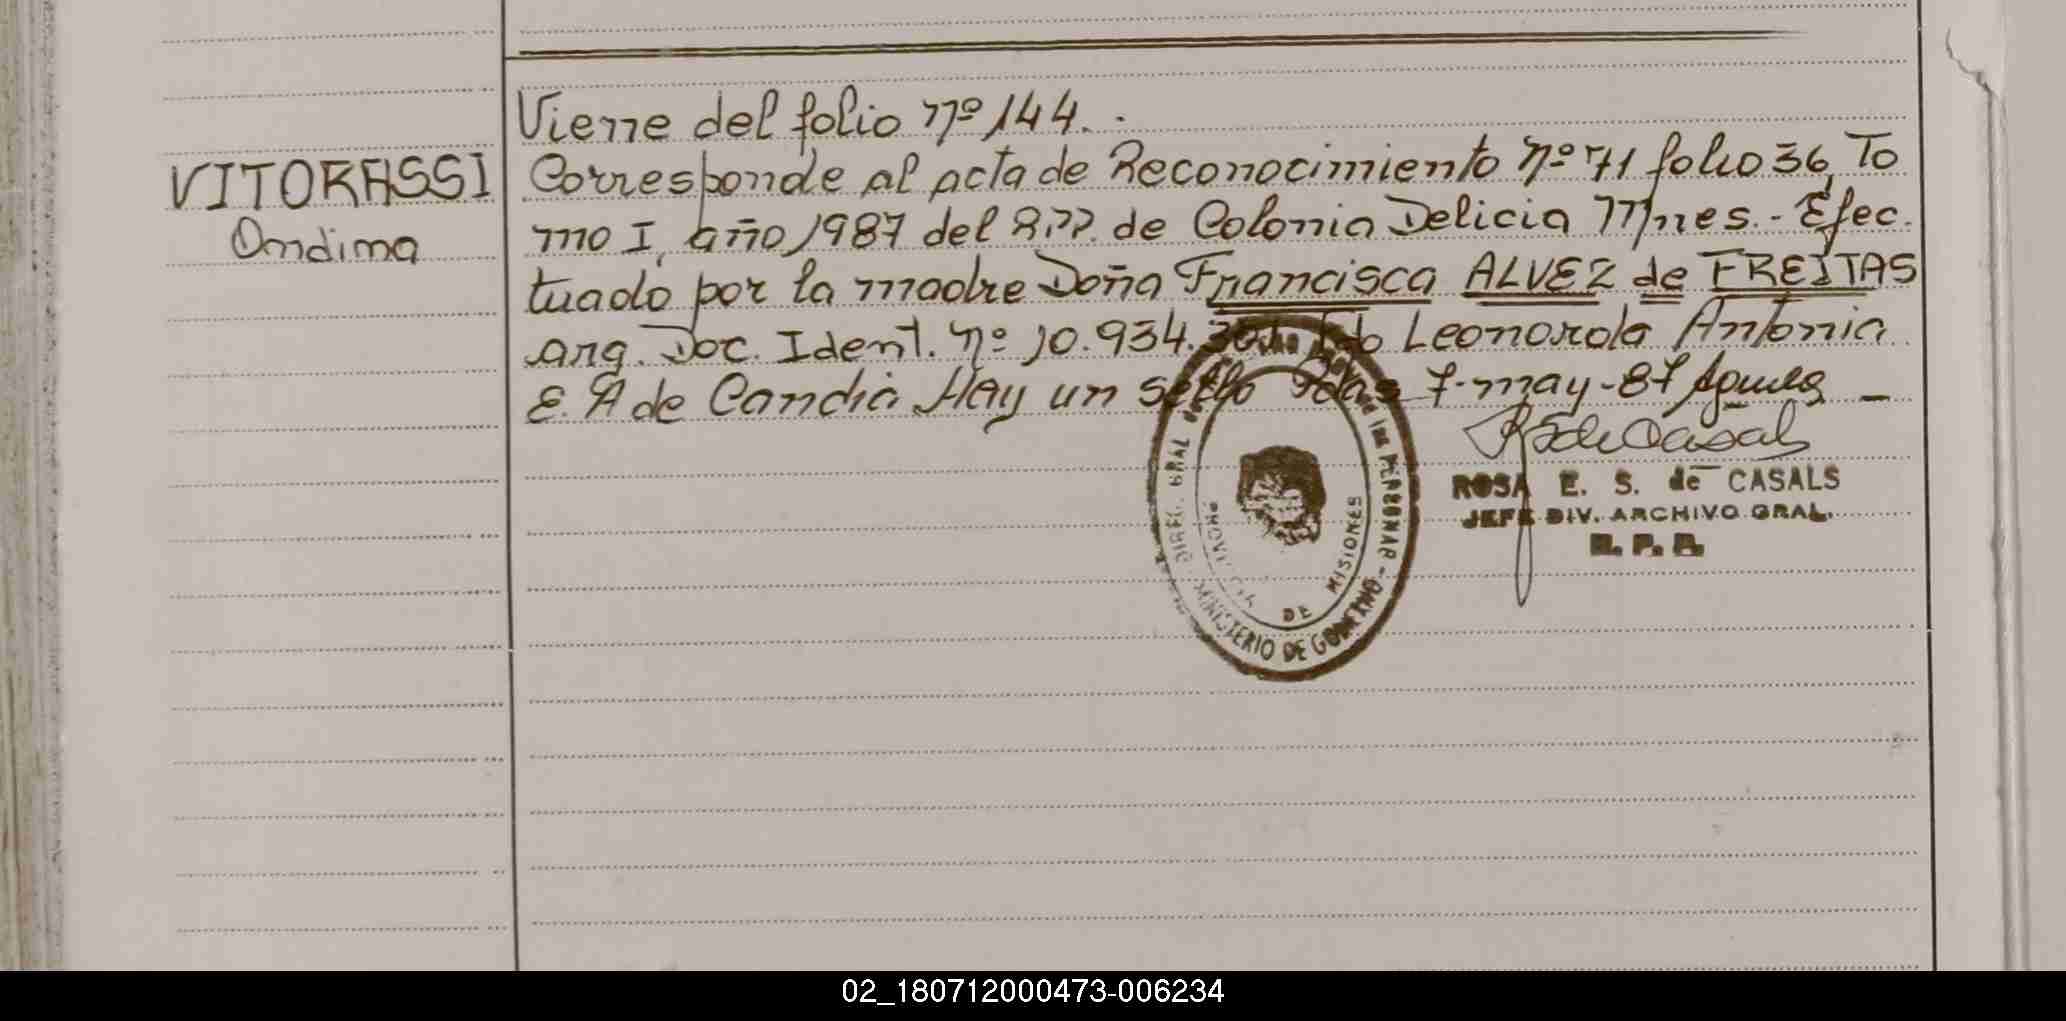 Viene del folio nº 144. -
VITORASSI
Ondina
Corresponde al acta de Reconocimiento nº 71 folio 36, To
mo I, año 1987 del R.PP. de Colonia Delicia Mnes. - Efec.
tuado por la madre Doña Francisca ALVEZ de FREITAS
arg. Doc. Ident. nº 10.934. Fdo Leonorda Antonia
E. A de Candia Hay un sello Pdas 7-may-87
ROSA E. S. de CASALS
JEFE DIV. ARCHIVO GRAL.
R. P. P.
DIREC. GRAL de las PERSONAS
MINISTERIO DE GOBIERNO
PROVINCIA DE MISIONES
02_180712000473-006234